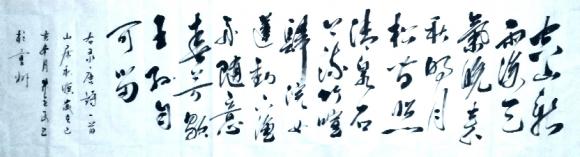 空山新
雨後天
氣晚来
秋明月
松間照
清泉石
上流竹喧
歸浣女
蓮動下漁
舟隨意
春芳歇
王孫自
可留
右录唐詩一首
山居秋暝